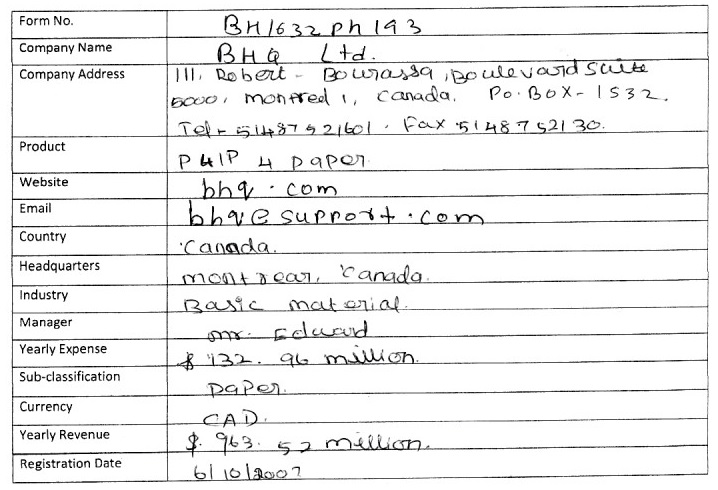 Form No. BH1632Ph193
Company Name BHQ Ltd.
Company Address 111, Robert - Bourassa, Boulevard suite
5000, montreal, Canada. Po.BOX-1532.
Tel- 5148752160l. Fax 5148752130.
Product P41P 4 paper.
Website bhq.com
Email bhq@support.com
Country Canada.
Headquarters montreal, Canada.
Industry Basic material.
Manager mr. Edward
Yearly Expense $ 132.96 million.
Sub-classification paper.
Currency CAD.
Yearly Revenue $. 963.52 million.
Registration Date 6/10/2007